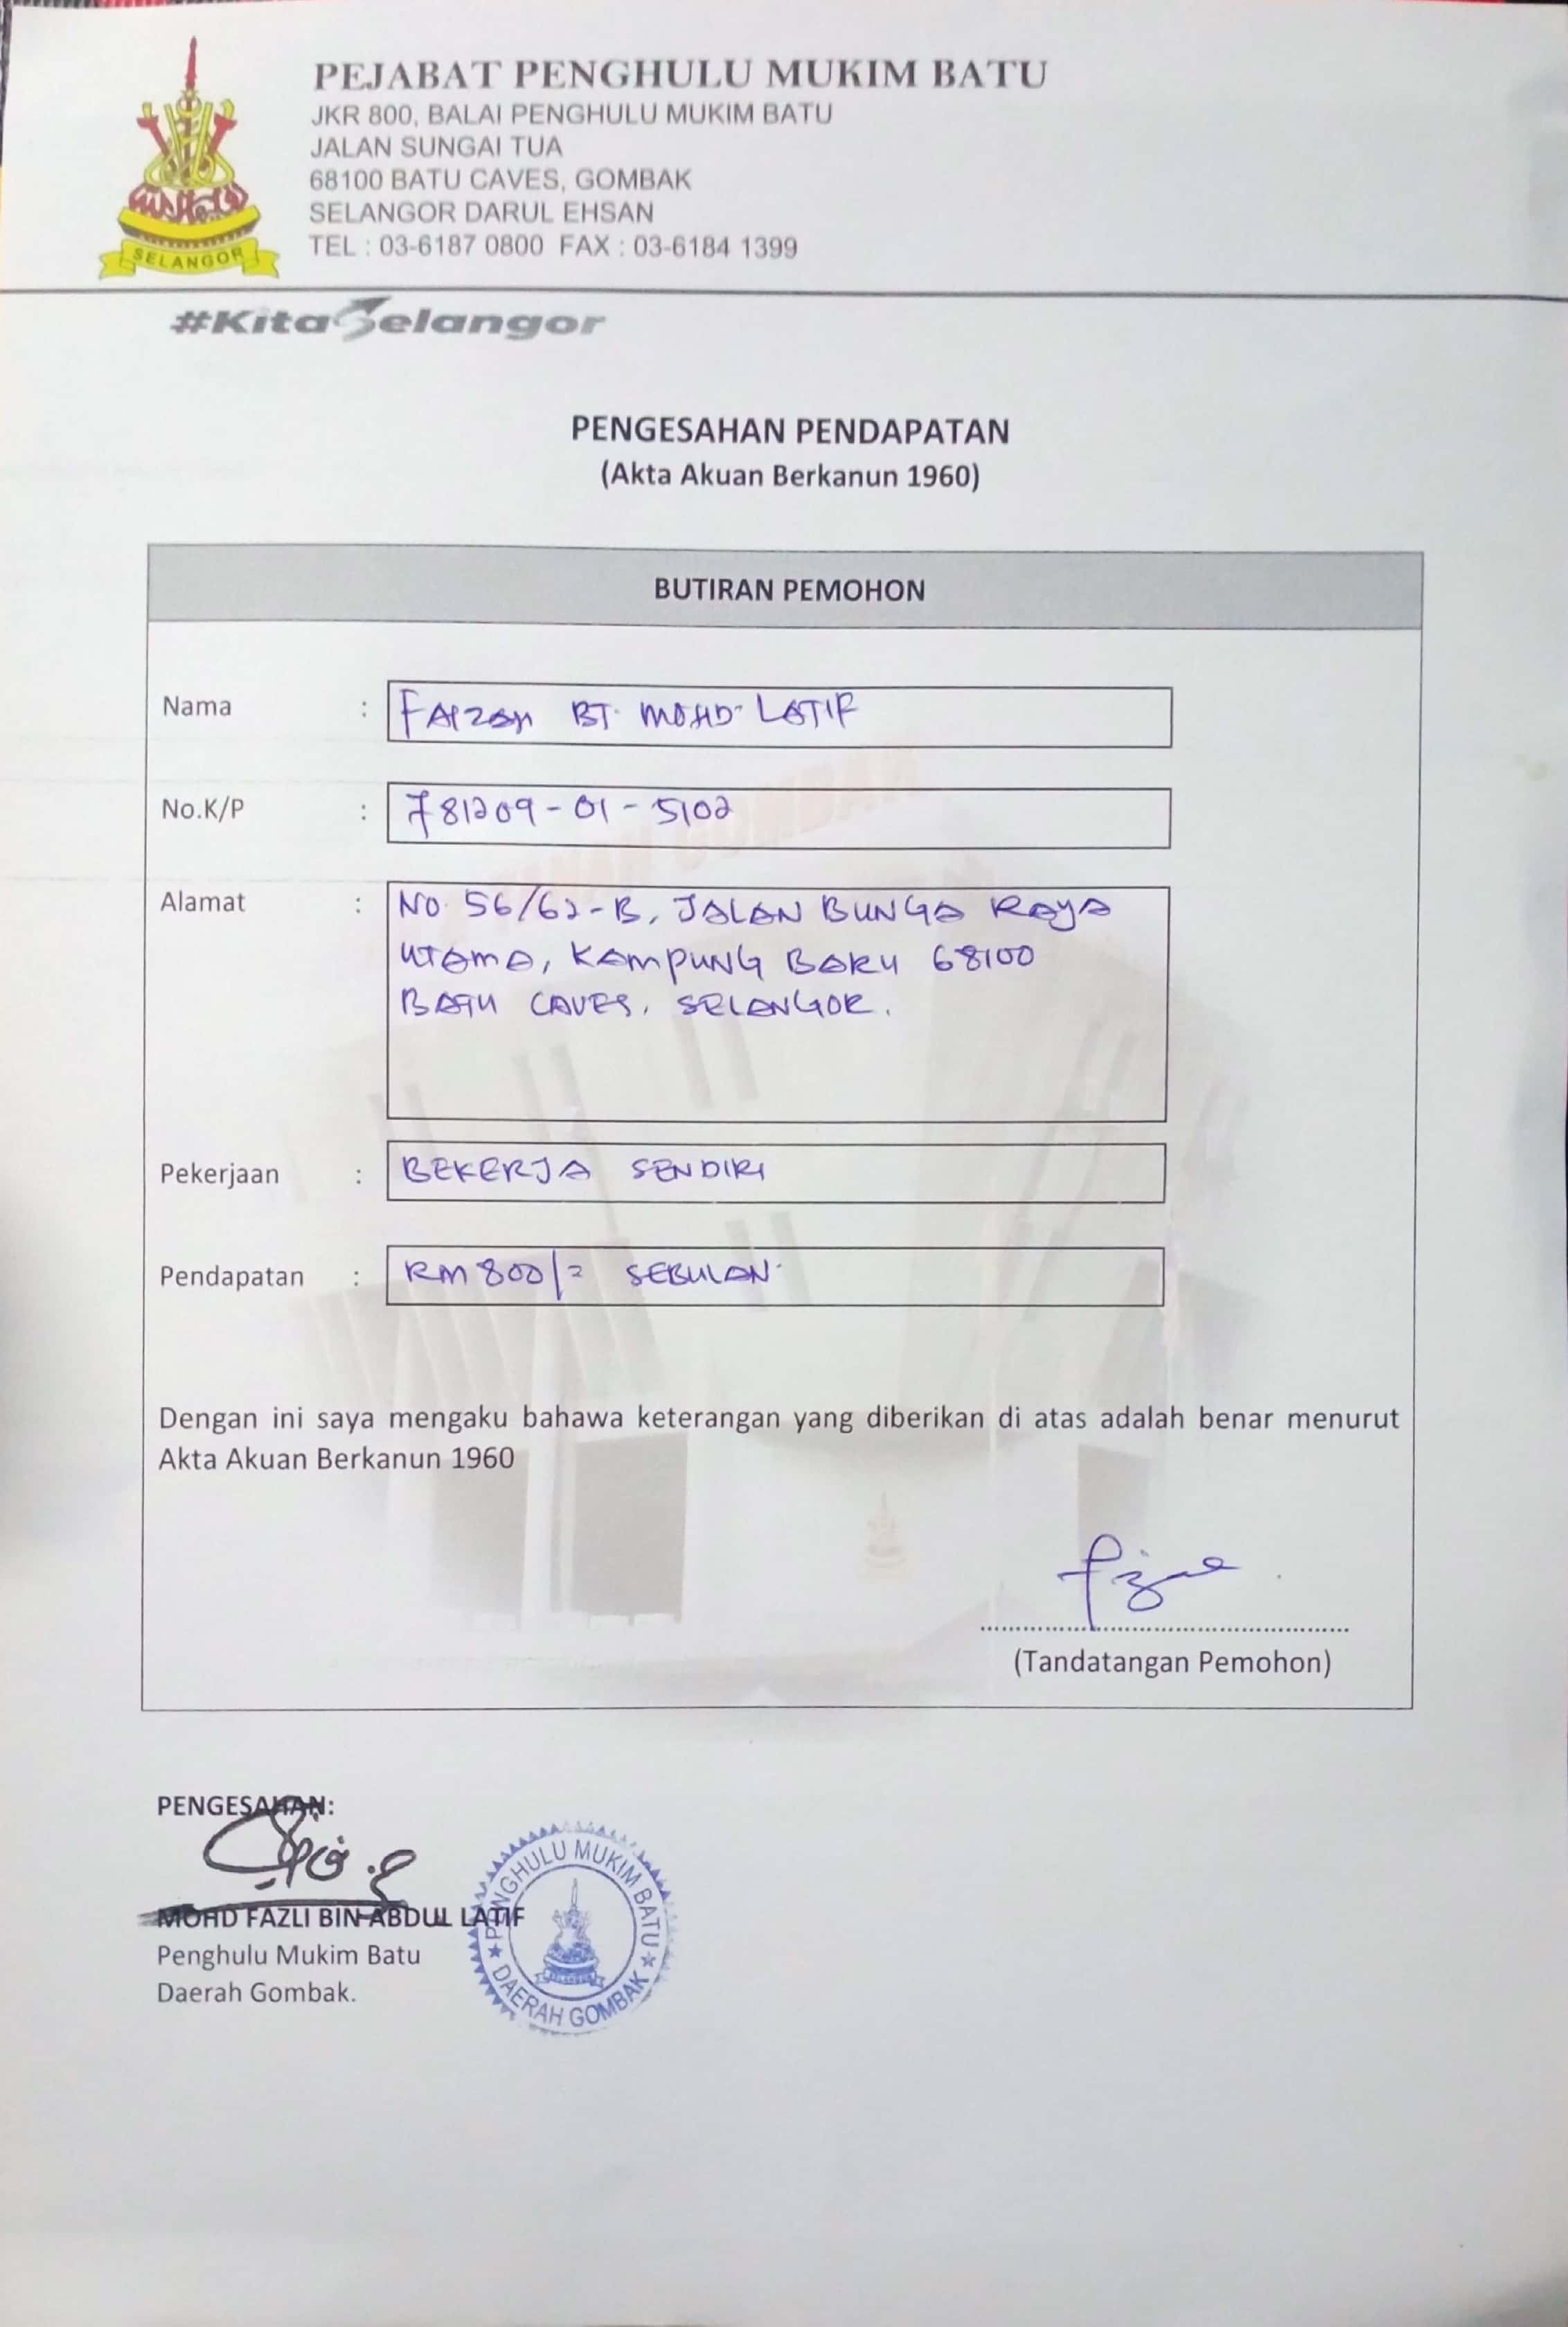 PEJABAT PENGHULU MUKIM BATU
JKR 800, BALAI PENGHULU MUKIM BATU
JALAN SUNGAI TUA
68100 BATU CAVES, GOMBAK
SELANGOR DARUL EHSAN
TEL : 03-6187 0800 FAX : 03-6184 1399
SELANGOR
#KitaSelangor
PENGESAHAN PENDAPATAN
(Akta Akuan Berkanun 1960)
BUTIRAN PEMOHON
Nama : FAIZAH BT. MOHD. LATIF
No.K/P : 781209-01-5102
Alamat : NO. 56/62-B, JALAN BUNGA RAYA
UTAMA, KAMPUNG BARU 68100
BATU CAVES, SELANGOR.
Pekerjaan : BEKERJA SENDIRI
Pendapatan : RM 800/= SEBULAN.
Dengan ini saya mengaku bahawa keterangan yang diberikan di atas adalah benar menurut
Akta Akuan Berkanun 1960
(Tandatangan Pemohon)
PENGESAHAN:
MOHD FAZLI BIN ABDUL LATIF
Penghulu Mukim Batu
Daerah Gombak.
PENGHULU MUKIM BATU
DAERAH GOMBAK